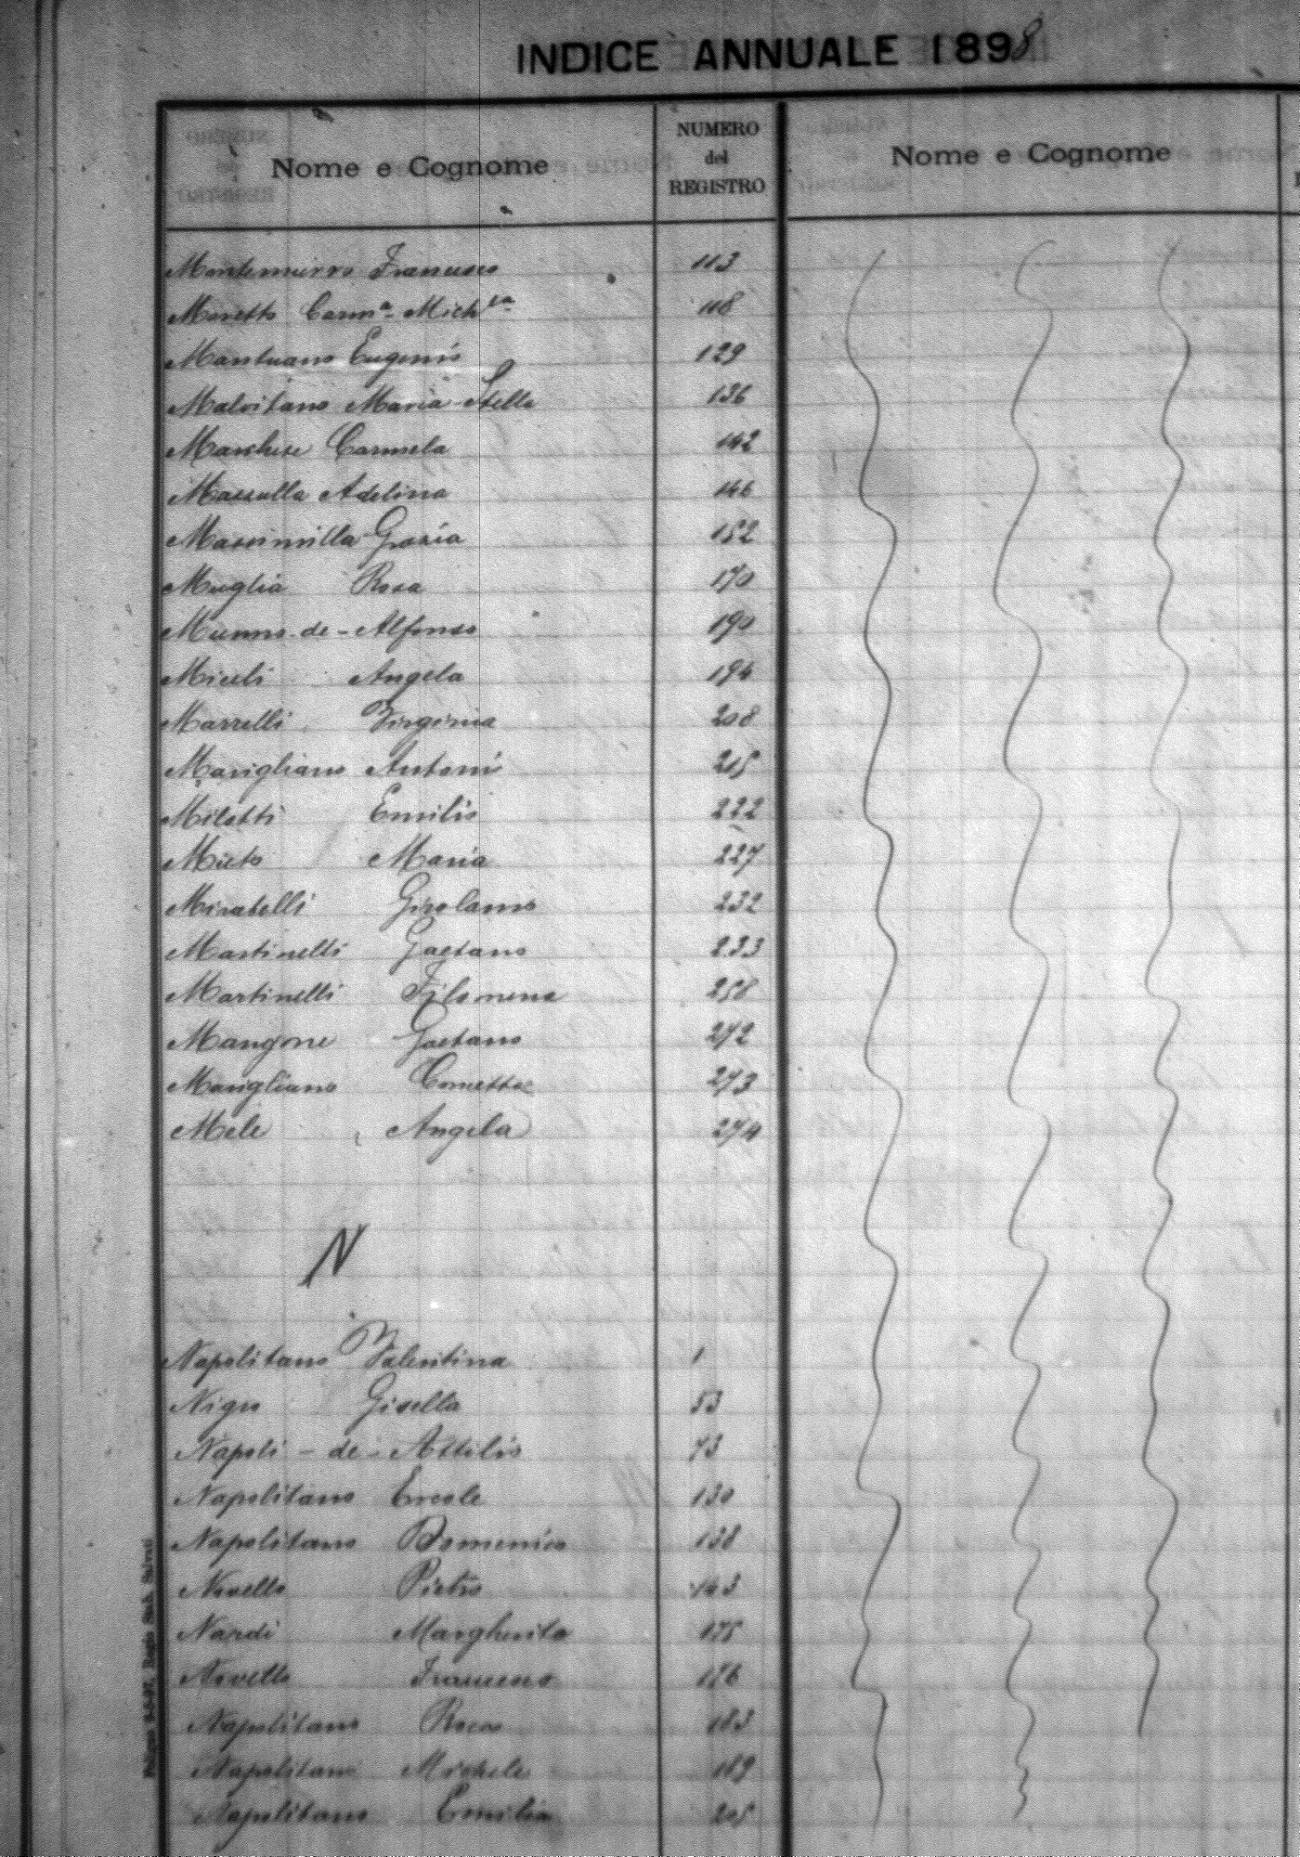 INDICE ANNUALE 1898
Nome e Cognome
NUMERO
del
REGISTRO
Nome e Cognome
Montemurro Francesco 113
Moretto Carmª Michlª 118
Mantuano Eugenio 129
Malvitano Maria Stella 136
Marchese Carmela 142
Massulla Adelina 146
Massimilla Grazia 152
Muglia Rosa 170
Munno-de-Alfonso 190
Miceli Angela 194
Marrelli Virginia 208
Marigliano Antoni 215
Milotti Emilio 222
Maria 227
Mirabelli Girolamo 232
Martinelli Gaetano 233
Martinelli Filomena 258
Mangone Gaetano 272
Marigliano 273
Mele Angela 274
N
Napolitano Valentina 1
Nigro Gisella 53
Napoli - de - Attilio 73
Napolitano Ercole 130
Napolitano Domenico 138
Novello Pietro 143
Nardi Margherita 175
Novello Francesco 176
Napolitano Rocco 183
Napolitano Michele 189
Napolitano Emilia 205